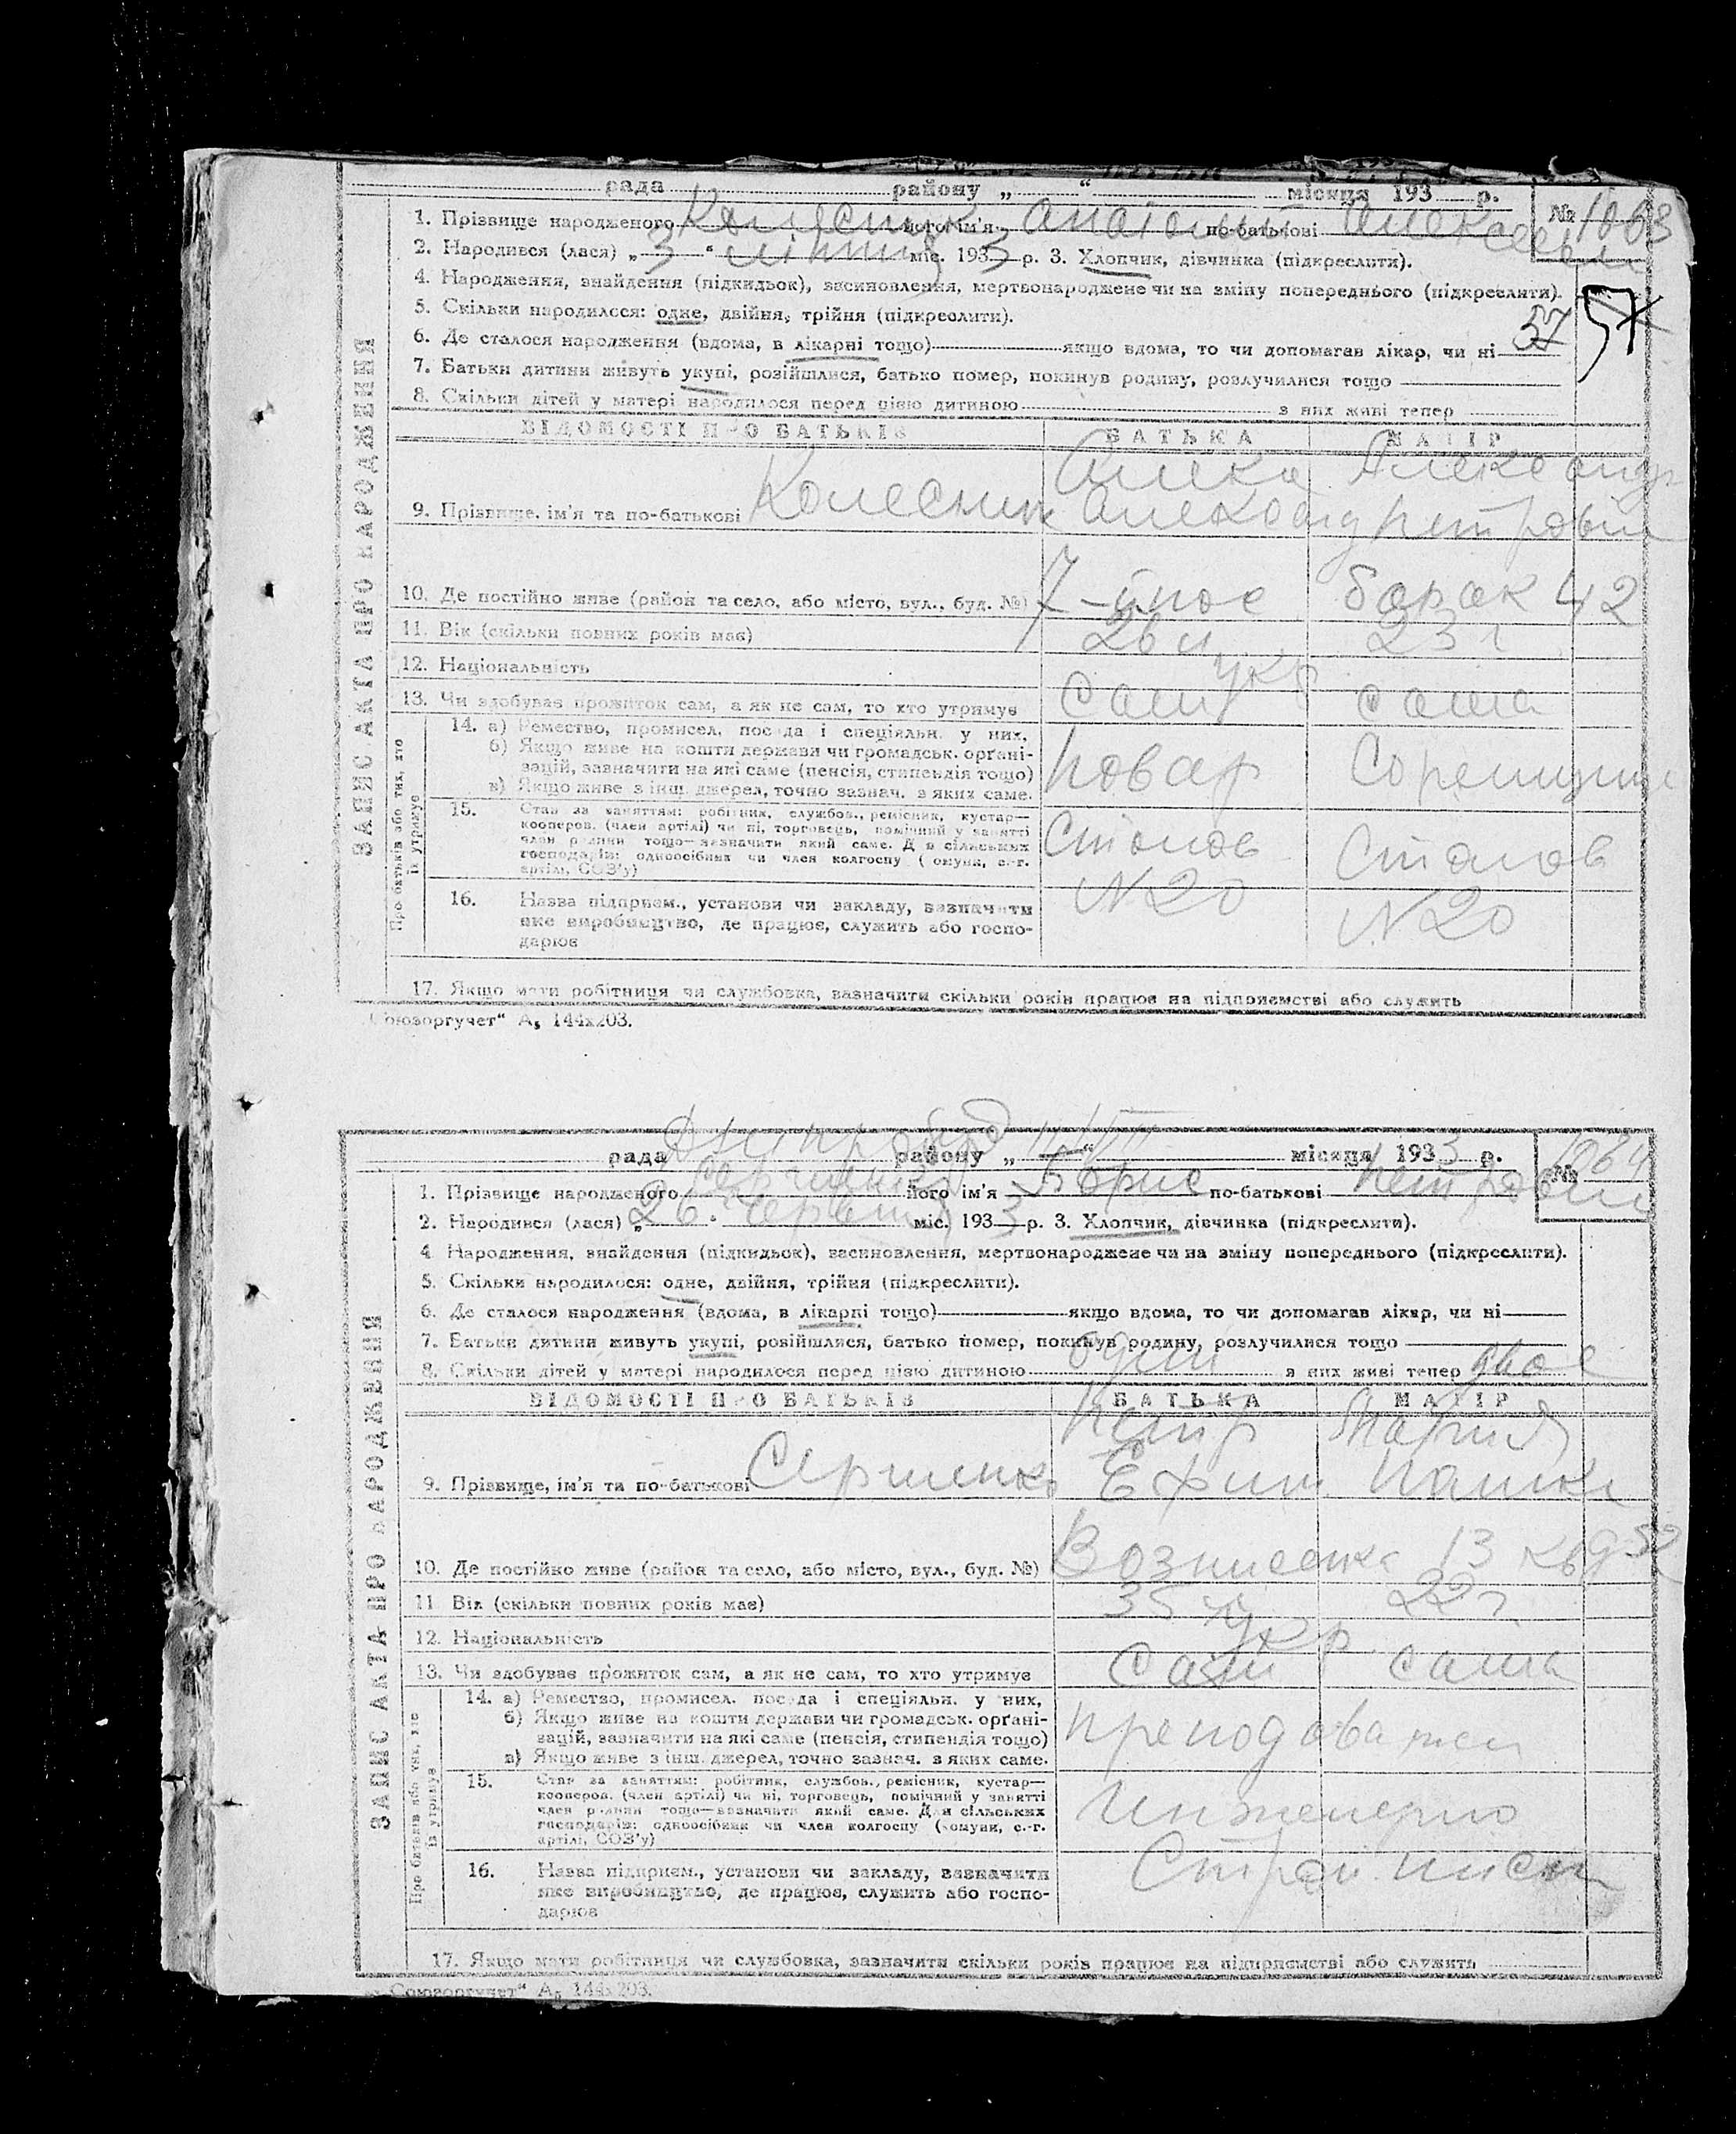 рада району „ “ місяця 193 р.
№ 1063
1. Прізвище народженого його ім'я по-батькові
2. Народився (лася) „ 3 “ міс. 193 3 р. 3. Хлопчик, дівчинка (підкреслити).
4. Народження, знайдення (підкидьок), засиновлення, мертвонароджене чи на зміну попереднього (підкреслити).
5. Скільки народилося: одне, двійня, трійня (підкреслити).
57
6. Де сталося народження (вдома, в лікарні тощо) якщо вдома, то чи допомагав лікар, чи ні 57
7. Батьки дитини живуть укупі, розійшлися, батько помер, покинув родину, розлучилися тощо
8. Скільки дітей у матері народилося перед цією дитиною з них живі тепер
ЗАПИС АКТА ПРО НАРОДЖЕННЯ
ВІДОМОСТІ ПРО БАТЬКІВ БАТЬКА МАТІР
9. Прізвище, ім'я та по-батькові Колесник
10. Де постійно живе (район та село, або місто, вул., буд. №) барак 42
11. Вік (скільки повних років має) 23 г
12. Національність укр
13. Чи здобуває прожиток сам, а як не сам, то хто утримує сам сама
Про батьків або тих, хто їх утримує
14. а) Ремество, промисел, посада і спеціяльн. у них,
б) Якщо живе на кошти держави чи громадськ. орґані-
зацій, зазначити на які саме (пенсія, стипендія тощо) повар
в) Якщо живе з інш. джерел, точно зазнач. з яких саме.
15. Стан за заняттям: робітник, службов., ремісник, кустар—
кооперов. (член артілі) чи ні, торговець, помічний у занятті
член родини тощо—зазначити який саме. Для сільських
господарів: одноосібник чи член колгоспу (комуни, с.-г.
артілі, СОЗ'у) Столов Столов
16. Назва підприєм., установи чи закладу, зазначити N 20 N 20
яке виробництво, де працює, служить або госпо-
дарює
17. Якщо мати робітниця чи службовка, зазначити скільки років працює на підприємстві або служить
„Союзоргучет“ А₅ 144х203.
рада району „ “ місяця 193 3 р.
№ 1064
1. Прізвище народженого його ім'я Борис по-батькові
2. Народився (лася) „ 26 “ міс. 193 3 р. 3. Хлопчик, дівчинка (підкреслити).
4 Народження, знайдення (підкидьок), засиновлення, мертвонароджене чи на зміну попереднього (підкреслити).
5. Скільки народилося: одне, двійня, трійня (підкреслити).
6. Де сталося народження (вдома, в лікарні тощо) якщо вдома, то чи допомагав лікар, чи ні
7. Батьки дитини живуть укупі, розійшлися, батько помер, покинув родину, розлучилися тощо
8. Скільки дітей у матері народилося перед цією дитиною один з них живі тепер двое
ЗАПИС АКТА ПРО НАРОДЖЕННЯ
ВІДОМОСТІ ПРО БАТЬКІВ БАТЬКА МАТІР
Петр Мария
9. Прізвище, ім'я та по-батькові Ефим
10. Де постійно живе (район та село, або місто, вул., буд. №) 13 кв
11 Вік (скільки повних років має) 35 22 г
12. Національність Укр.
13. Чи здобуває прожиток сам, а як не сам, то хто утримує сам сама
Про батьків або тих, хто їх утримує
14. а) Ремество, промисел, посада і спеціяльн. у них,
б) Якщо живе на кошти держави чи громадськ. орґані-
зацій, зазначити на які саме (пенсія, стипендія тощо)
в) Якщо живе з інш. джерел, точно зазнач. з яких саме.
15. Стан за заняттям: робітник, службов., ремісник, кустар—
кооперов. (член артілі) чи ні, торговець, помічний у занятті
член родини тощо—зазначити який саме. Для сільських
господарів: одноосібник чи член колгоспу (комуни, с.-г.
артілі, СОЗ'у)
16. Назва підприєм., установи чи закладу, зазначити
яке виробництво, де працює, служить або госпо-
дарює
17. Якщо мати робітниця чи службовка, зазначити скільки років працює на підприємстві або служить
„Союзоргучет“ А₅ 144х203.